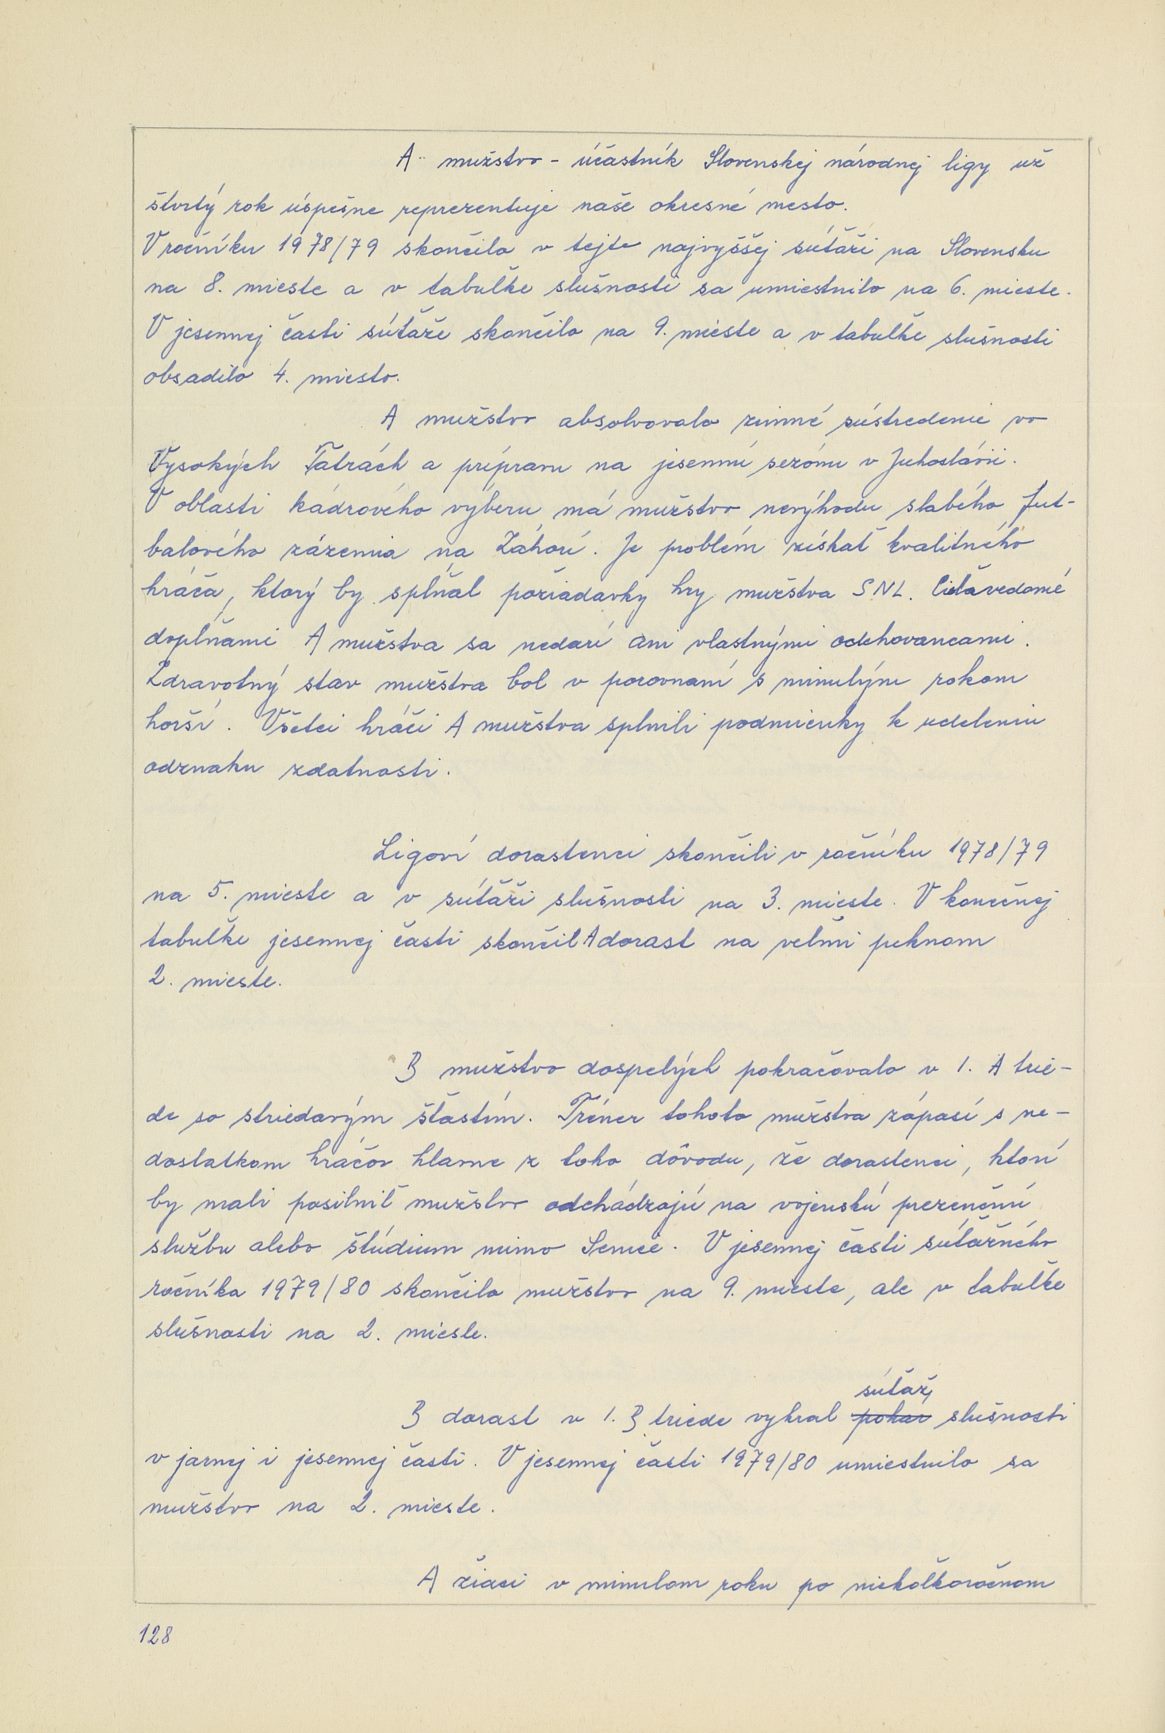 A mužstvo - účastník Slovenskej národnej ligy už
štvrtý rok úspešne reprezentuje naše okresné mesto.
V ročníku 1978/79 skončilo v tejto najvyššej súťaži na Slovensku
na 8. mieste a v tabuľke slušnosti sa umiestnilo na 6. mieste.
V jesennej časti súťaže skončilo na 9. mieste a v tabuľke slušnosti
obsadilo 4. miesto.
A mužstvo absolvovalo zimné sústredenie vo
Vysokých Tatrách a prípravu na jesennú sezónu v Juhoslávii.
V oblasti kádrového výberu má mužstvo nevýhodu slabého fut-
balového zázemia na Záhorí. Je problém získať kvalitného
hráča, ktorý by spĺňal požiadavky hry mužstva SNL. Cieľavedomé
doplňami A mužstva sa nedarí ani vlastnými odchovancami.
Zdravotný stav mužstva bol v porovnaní s minulým rokom
horší. Všetci hráči A mužstva splnili podmienky k udeleniu
odznaku zdatnosti.
Ligoví dorastenci skončili v ročníku 1978/79
na 5. mieste a v súťaži slušnosti na 3. mieste. V konečnej
tabuľke jesennej časti skončil A dorast na veľmi peknom
2. mieste.
B mužstvo dospelých pokračovalo v 1. A trie-
de so striedavým šťastím. Tréner tohoto mužstva zápasí s ne-
dostatkom hráčov hlavne z toho dôvodu, že dorastenci, ktorí
by mali posilniť mužstvo odchádzajú na vojenskú prezenčnú
službu alebo štúdium mimo Senice. V jesennej časti súťažného
ročníka 1979/80 skončilo mužstvo na 9. mieste, ale v tabuľke
slušnosti na 2. mieste.
súťaž
B dorast v 1. B triede vyhral pohár slušnosti
v jarnej i jesennej časti. V jesennej časti 1979/80 umiestnilo sa
mužstvo na 2. mieste.
A žiaci v minulom roku po niekoľkoročnom
128